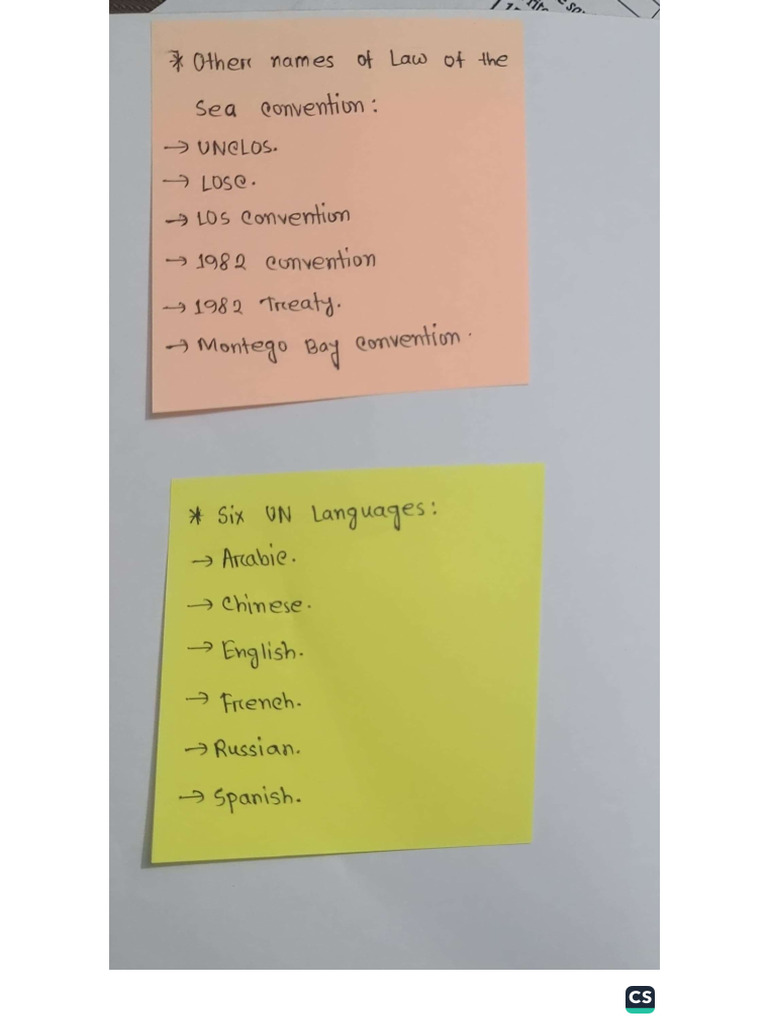 * Other names of Law of the
Sea convention:
→ UNCLOS.
→ LOSC.
→ LOS Convention
→ 1982 convention
→ 1982 Treaty.
→ Montego Bay convention.
* Six UN Languages:
→ Arabic.
→ Chinese.
→ English.
→ French.
→ Russian.
→ Spanish.
CS